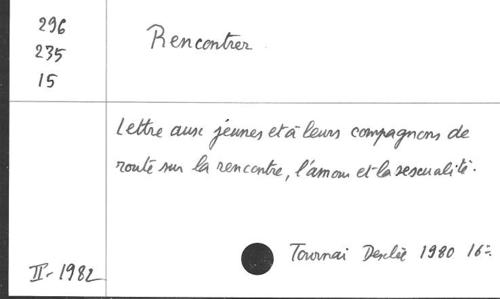 296
235
15
Rencontrer
Lettre aux jeunes et à leurs compagnons de
route sur la rencontre, l'amour et la sexualité.
Tournai Desclée 1980 16°.
II-1982